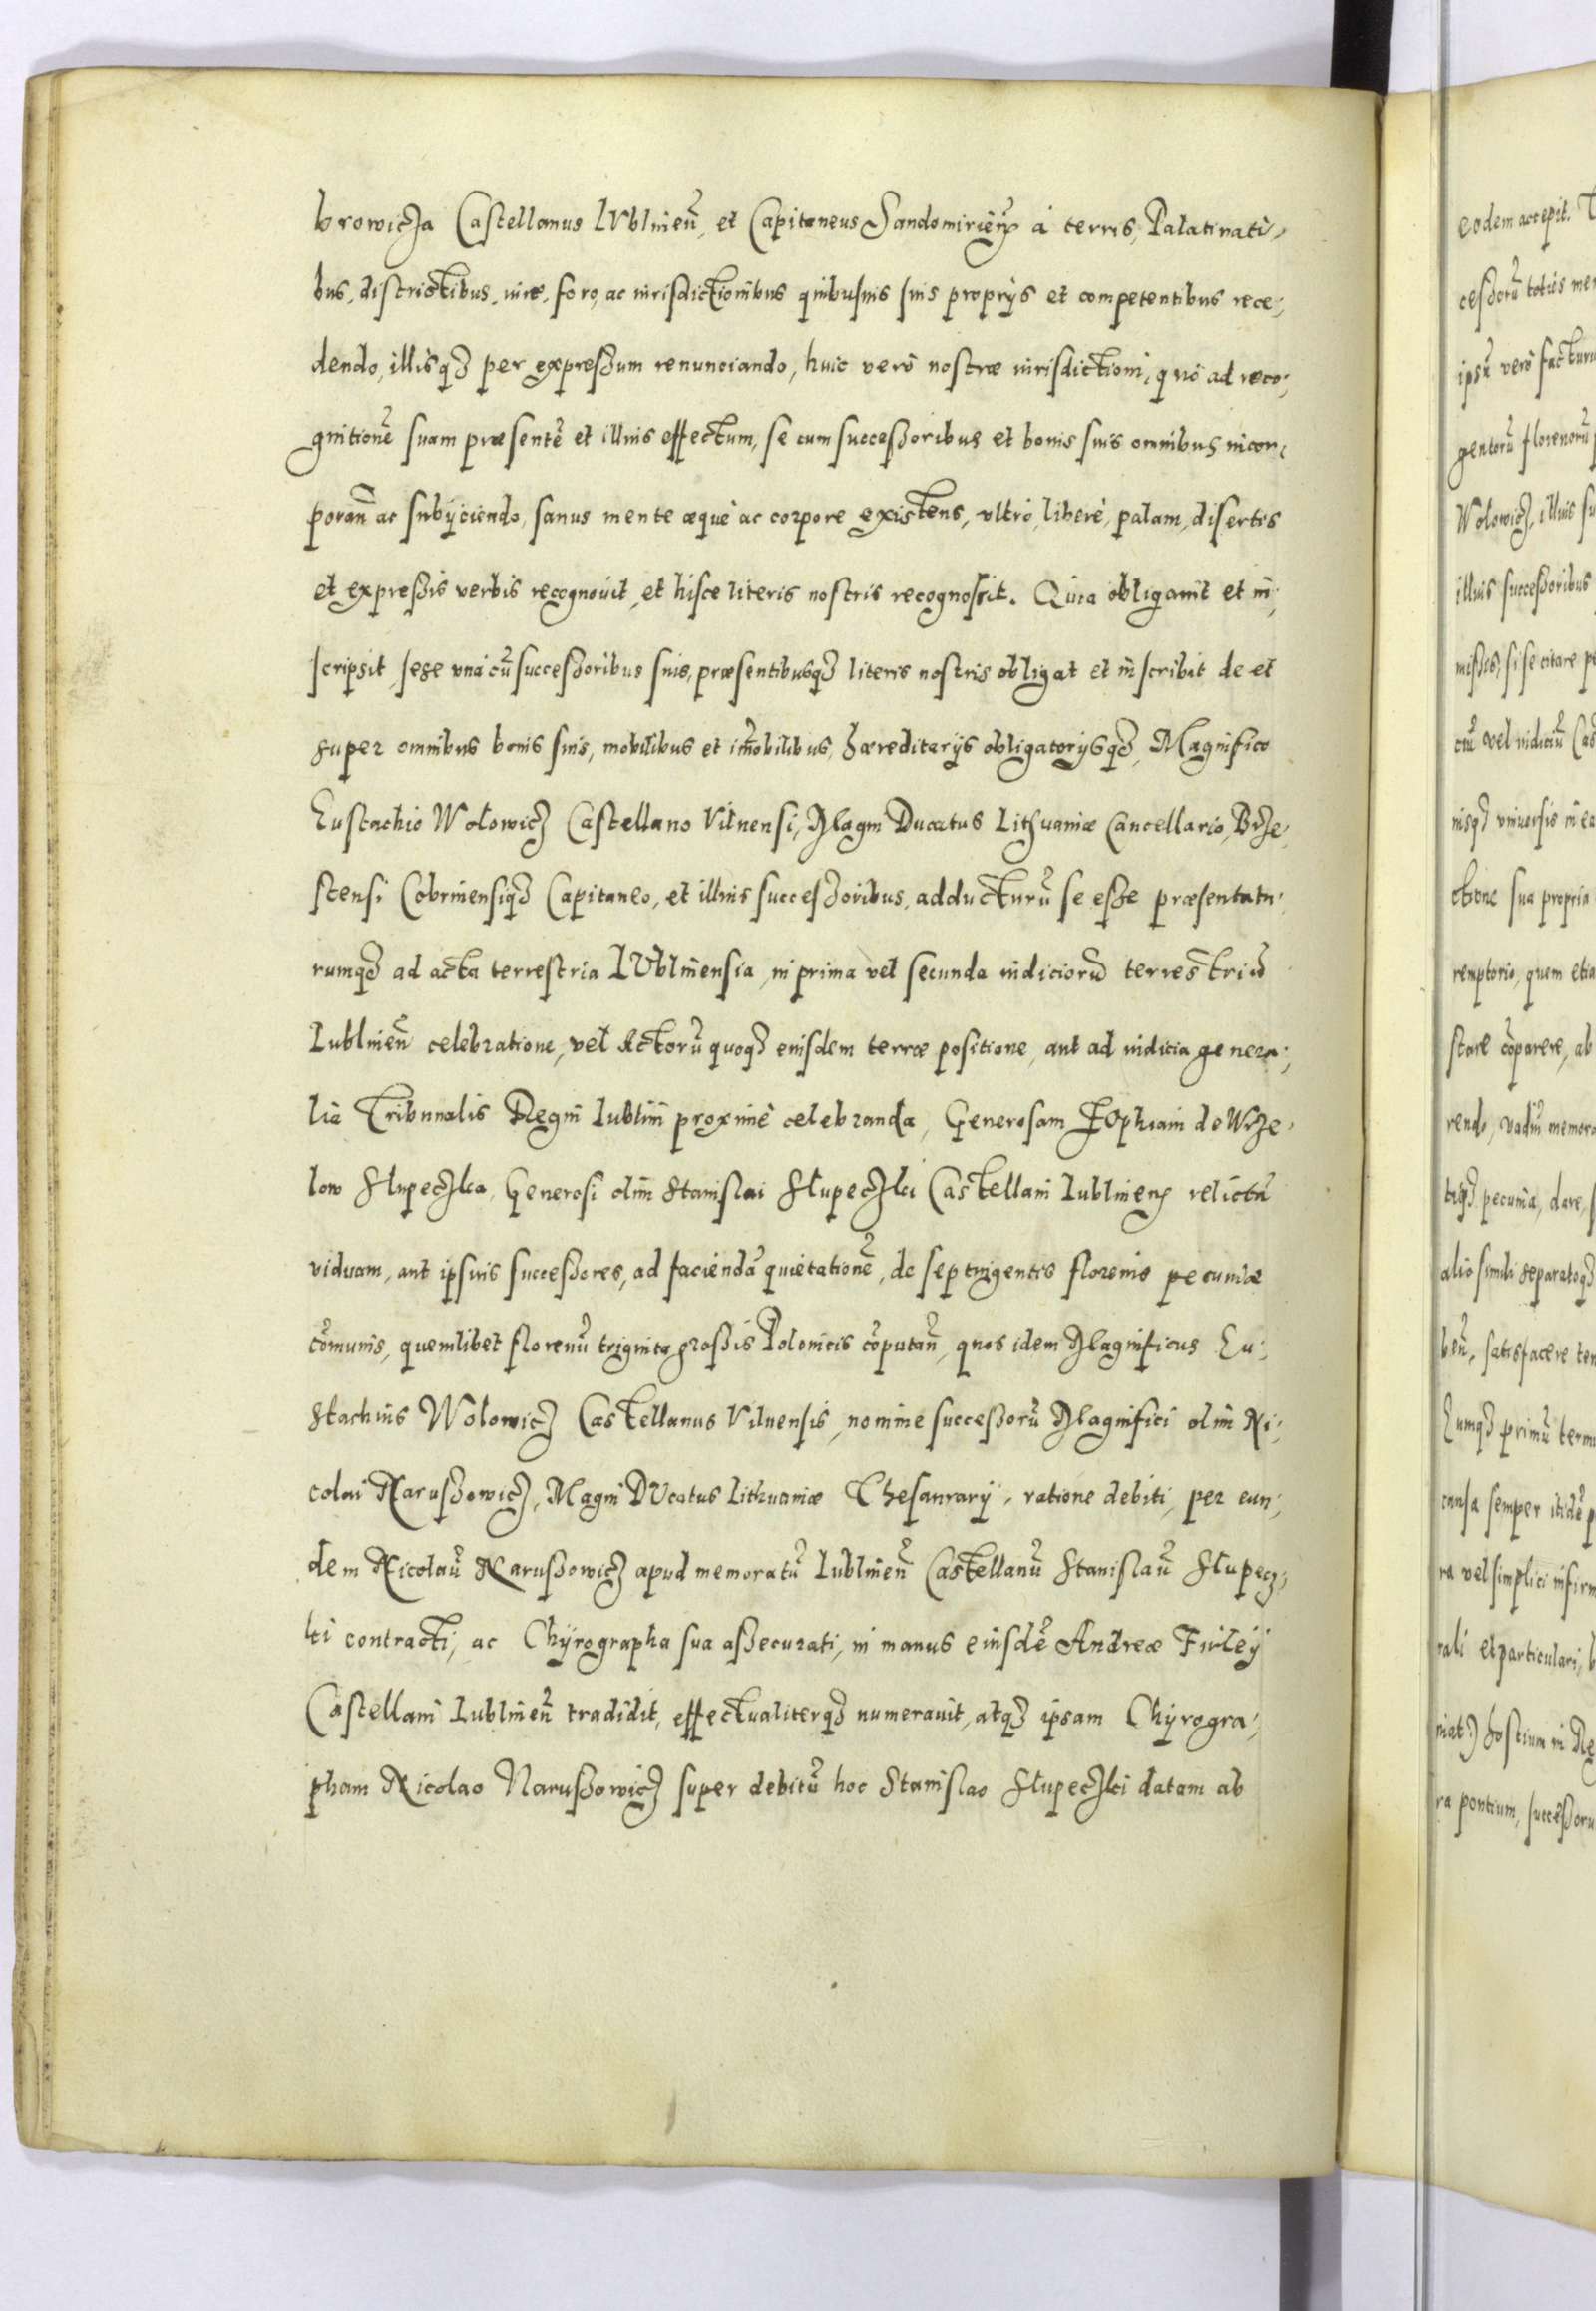 browicza Castellanus LVblineñ, et Capitaneus Sandomirieñ à terris, Palatinati,
bus, districtibus, iure, foro, ac iurisdictionibus quibusuis suis proprys et competentibus rece,
dendo, illisqȝ per expressum renunciando, huic verò nostræ iurisdictioni, quò ad reco,
gnitionẽ suam præsentẽ et illius effectum, se cum successoribus et bonis suis omnibus incor,
porañ ac subÿciendo, sanus mente æquè ac corpore existens, vltrò, liberè, palam, disertis
et expressis verbis recognouit, et hisce literis nostris recognoscit. Quia obligauit et in,
scripsit sese unà cũ successoribus suis, præsentibusqȝ literis nostris obligat et inscribit de et
super omnibus bonis suis, mobilibus et im̃obilibus, hæreditarÿs obligatorÿsqȝ, Magnifico
Eustachio Wołowicz Castellano Vilnensi, Magni Ducatus Lithuaniæ Cancellario, Brze,
stensi Cobrinensiqȝ Capitaneo, et illius successoribus, adducturũ se esse præsentatu,
rumqȝ ad acta terrestria LVblinensia, in prima vel secunda iudiciorũ terrestriũ
Lublineñ celebratione, vel Actorũ quoqȝ eiusdem terræ positione, aut ad iudicia genera,
lia Tribunalis Regni Lublini proximè celebranda, Generosam Zophiam de Wrze,
low Słupeczka, Generosi olim Stanislai Słupeczki Castellani Lublinenȝ relictã
viduam, aut ipsius successores, ad faciendã quietationẽ, de septingentis florenis pecuniæ
cõmunis, quemlibet florenũ triginta grossis Polonicis cõputañ, quos idem Magnificus Eu,
stachius Wołowicz Castellanus Vilnensis, nomine successorũ Magnifici olim Ni,
colai Narussowicz, Magni DVcatus Lithuaniæ Thesaurarÿ, ratione debiti, per eun,
dem Nicolaũ Narussowicz apud memoratũ Lublineñ Castellanũ Stanislaũ Słupecz,
ki contracti, ac Chÿrographa sua assecurati, in manus eiusdẽ Andreæ Firleÿ
Castellani Lublineñ tradidit, effectualiterqȝ numerauit, atqȝ ipsam Chÿrogra,
pham Nicolao Narussowicz super debitũ hoc Stanislao Słupeczki datam ab
eodem accepit.
cessorũ totius
ipsũ verò
gentorũ florenorũ
Wołowicz, illius
illius successoribus
missis, si se citare
ciũ vel iudiciũ
niusqȝ vniuersis in
ctione sua propria
remptorio, quem
stare cõparere, ab
rendo, vadiũ
pecunia, dare,
alio simili separatoqȝ
beñ, satisfacere
Eumqȝ primũ
causa semper itidẽ
ra vel simplici
rali et particulari,
niat) hostium in
ra pontium,